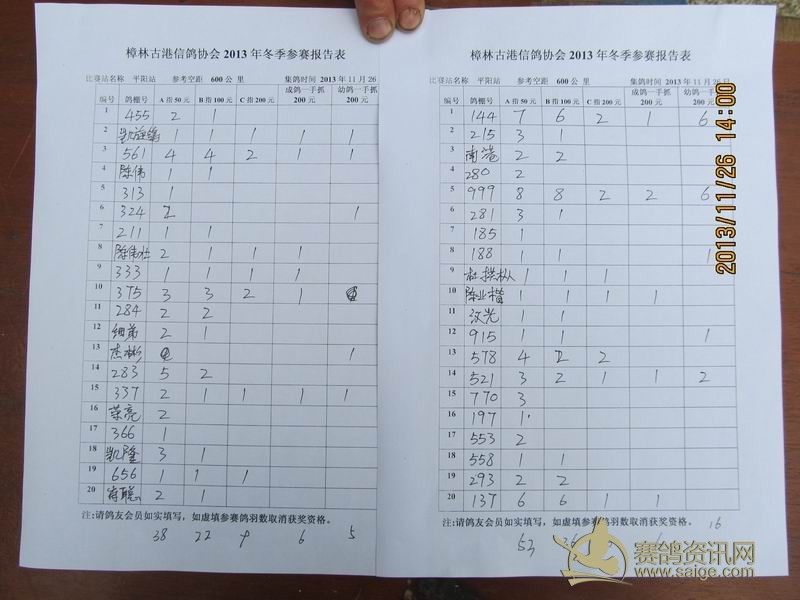 樟林古港信鸽协会 2013 年冬季参赛报告表
比赛站名称 平阳站 参考空距 600 公 里 集鸽时间 2013 年 11 月 26
编号 鸽棚号 A 指 50 元 B 指 100 元 C 指 200 元 成鸽一手抓 200 元 幼鸽一手抓 200 元
1 455 2 1
2 1 1 1 1 1
3 561 4 4 2 1 1
4 陈伟 1 1
5 313 1
6 324 1 1
7 211 1 1
8 陈伟 2 1 1 1
9 333 1 1 1 1
10 375 3 3 2 1
11 284 2 2
12 细弟 2 1
13 杰彬 1
14 283 5 2
15 337 2 1 1 1 1
16 荣亮 2
17 366 1
18 凯隆 3 1
19 656 1 1 1
20 2 1
注:请鸽友会员如实填写，如虚填参赛鸽羽数取消获奖资格。
38 22 9 6 5
樟林古港信鸽协会 2013 年冬季参赛报告表
比赛站名称 平阳站 参考空距 600 公 里 集鸽时间 2013 年 11 月 26 日
编号 鸽棚号 A 指 50 元 B 指 100 元 C 指 200 元 成鸽一手抓 200 元 幼鸽一手抓 200 元
1 144 7 6 2 1 6
2 215 3 1
3 南港 2 2
4 280 2
5 999 8 8 2 2 6
6 281 3 1
7 185 1
8 188 1 1 1
9 1 1 1
10 1 1 1 1
11 汶光 1 1
12 915 1 1 1
13 578 4 2 2
14 521 3 2 1 1 2
15 770 3
16 197 1
17 553 2
18 558 1 1
19 293 2 2
20 137 6 6 1 1
注:请鸽友会员如实填写，如虚填参赛鸽羽数取消获奖资格。
53 16
2013/11/26 14:00
赛鸽资讯网
www.saige.com